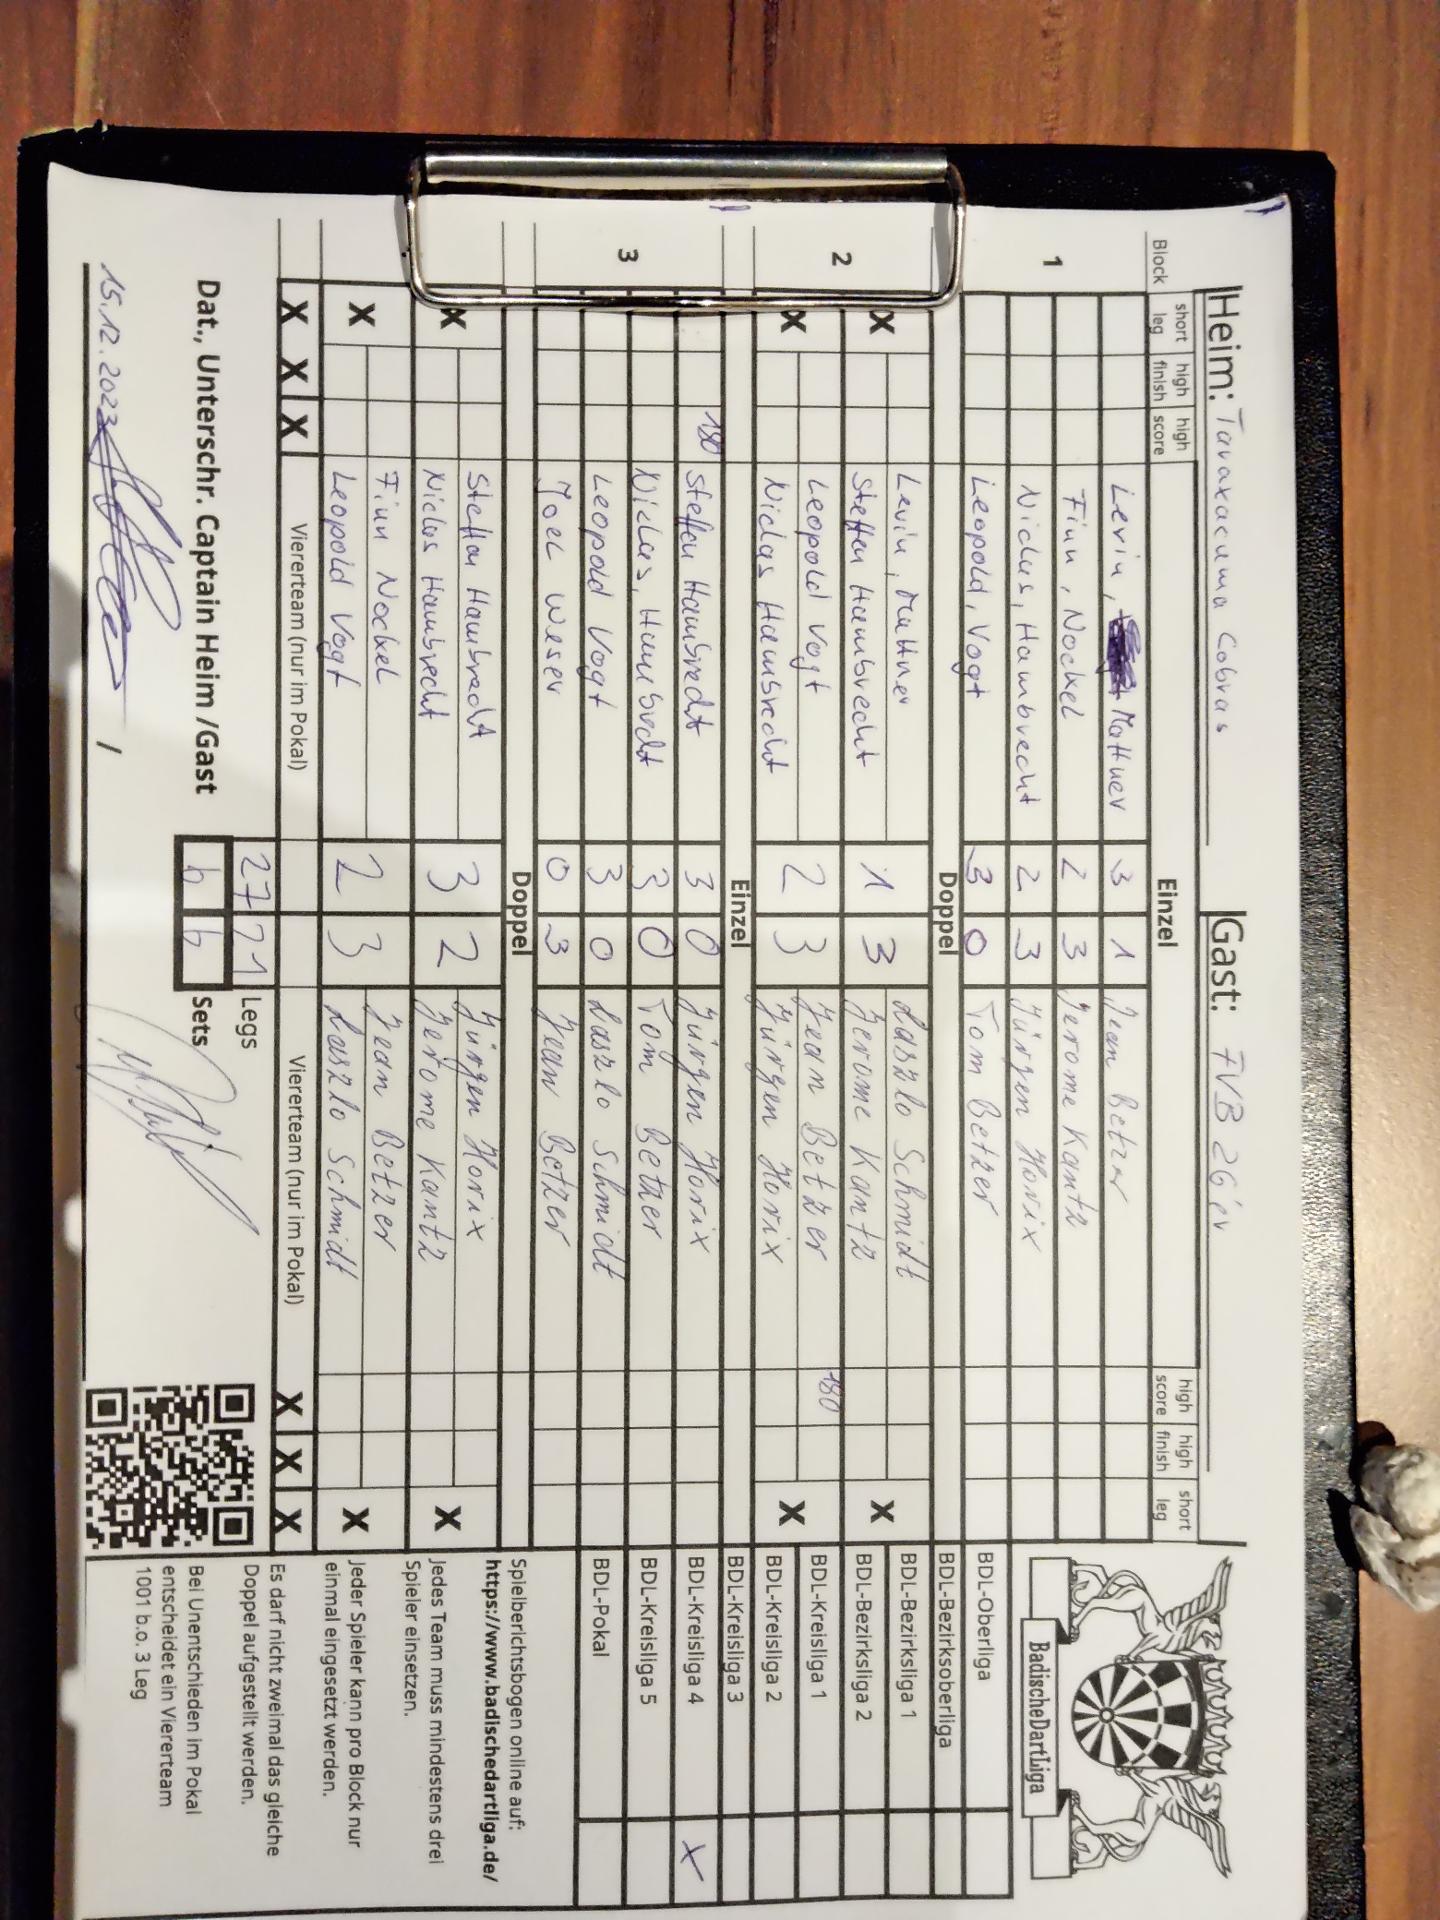 Heim: Taraxacuma Cobras Gast: FVB 26 ev
Block short leg high finish high score Einzel high score high finish short leg
1 Levin, Mattner 3 1 Jean Betzer
Finn, Nockel 2 3 Jerome Kantz
Niclas, Hambrecht 2 3 Jürgen Horix
Leopold, Vogt 3 0 Tom Betzer
Doppel
2 X Levin, Mattner 1 3 Laszlo Schmidt X
Steffen Hambrecht Jerome Kantz
X Leopold Vogt 2 3 Jean Betzer 180 X
Niclas Hambrecht Jürgen Horix
Einzel
3 180 Steffen Hambrecht 3 0 Jürgen Horix
Niclas, Hambrecht 3 0 Tom Betzer
Leopold Vogt 3 0 Laszlo Schmidt
Joel Weser 0 3 Jean Betzer
Doppel
X Steffen Hambrecht 3 2 Jürgen Horix X
Niclas Hambrecht Jerome Kantz
X Finn Nockel 2 3 Jean Betzer X
Leopold Vogt Laszlo Schmidt
X X X Viererteam (nur im Pokal) Viererteam (nur im Pokal) X X X
27 21 Legs
Dat., Unterschr. Captain Heim /Gast 6 6 Sets
15.12.2023 /
BadischeDartLiga
BDL-Oberliga
BDL-Bezirksoberliga
BDL-Bezirksliga 1
BDL-Bezirksliga 2
BDL-Kreisliga 1
BDL-Kreisliga 2
BDL-Kreisliga 3
BDL-Kreisliga 4 X
BDL-Kreisliga 5
BDL-Pokal
Spielberichtsbogen online auf:
https://www.badischedartliga.de/
Jedes Team muss mindestens drei
Spieler einsetzen.
Jeder Spieler kann pro Block nur
einmal eingesetzt werden.
Es darf nicht zweimal das gleiche
Doppel aufgestellt werden.
Bei Unentschieden im Pokal
entscheidet ein Viererteam
1001 b.o. 3 Leg